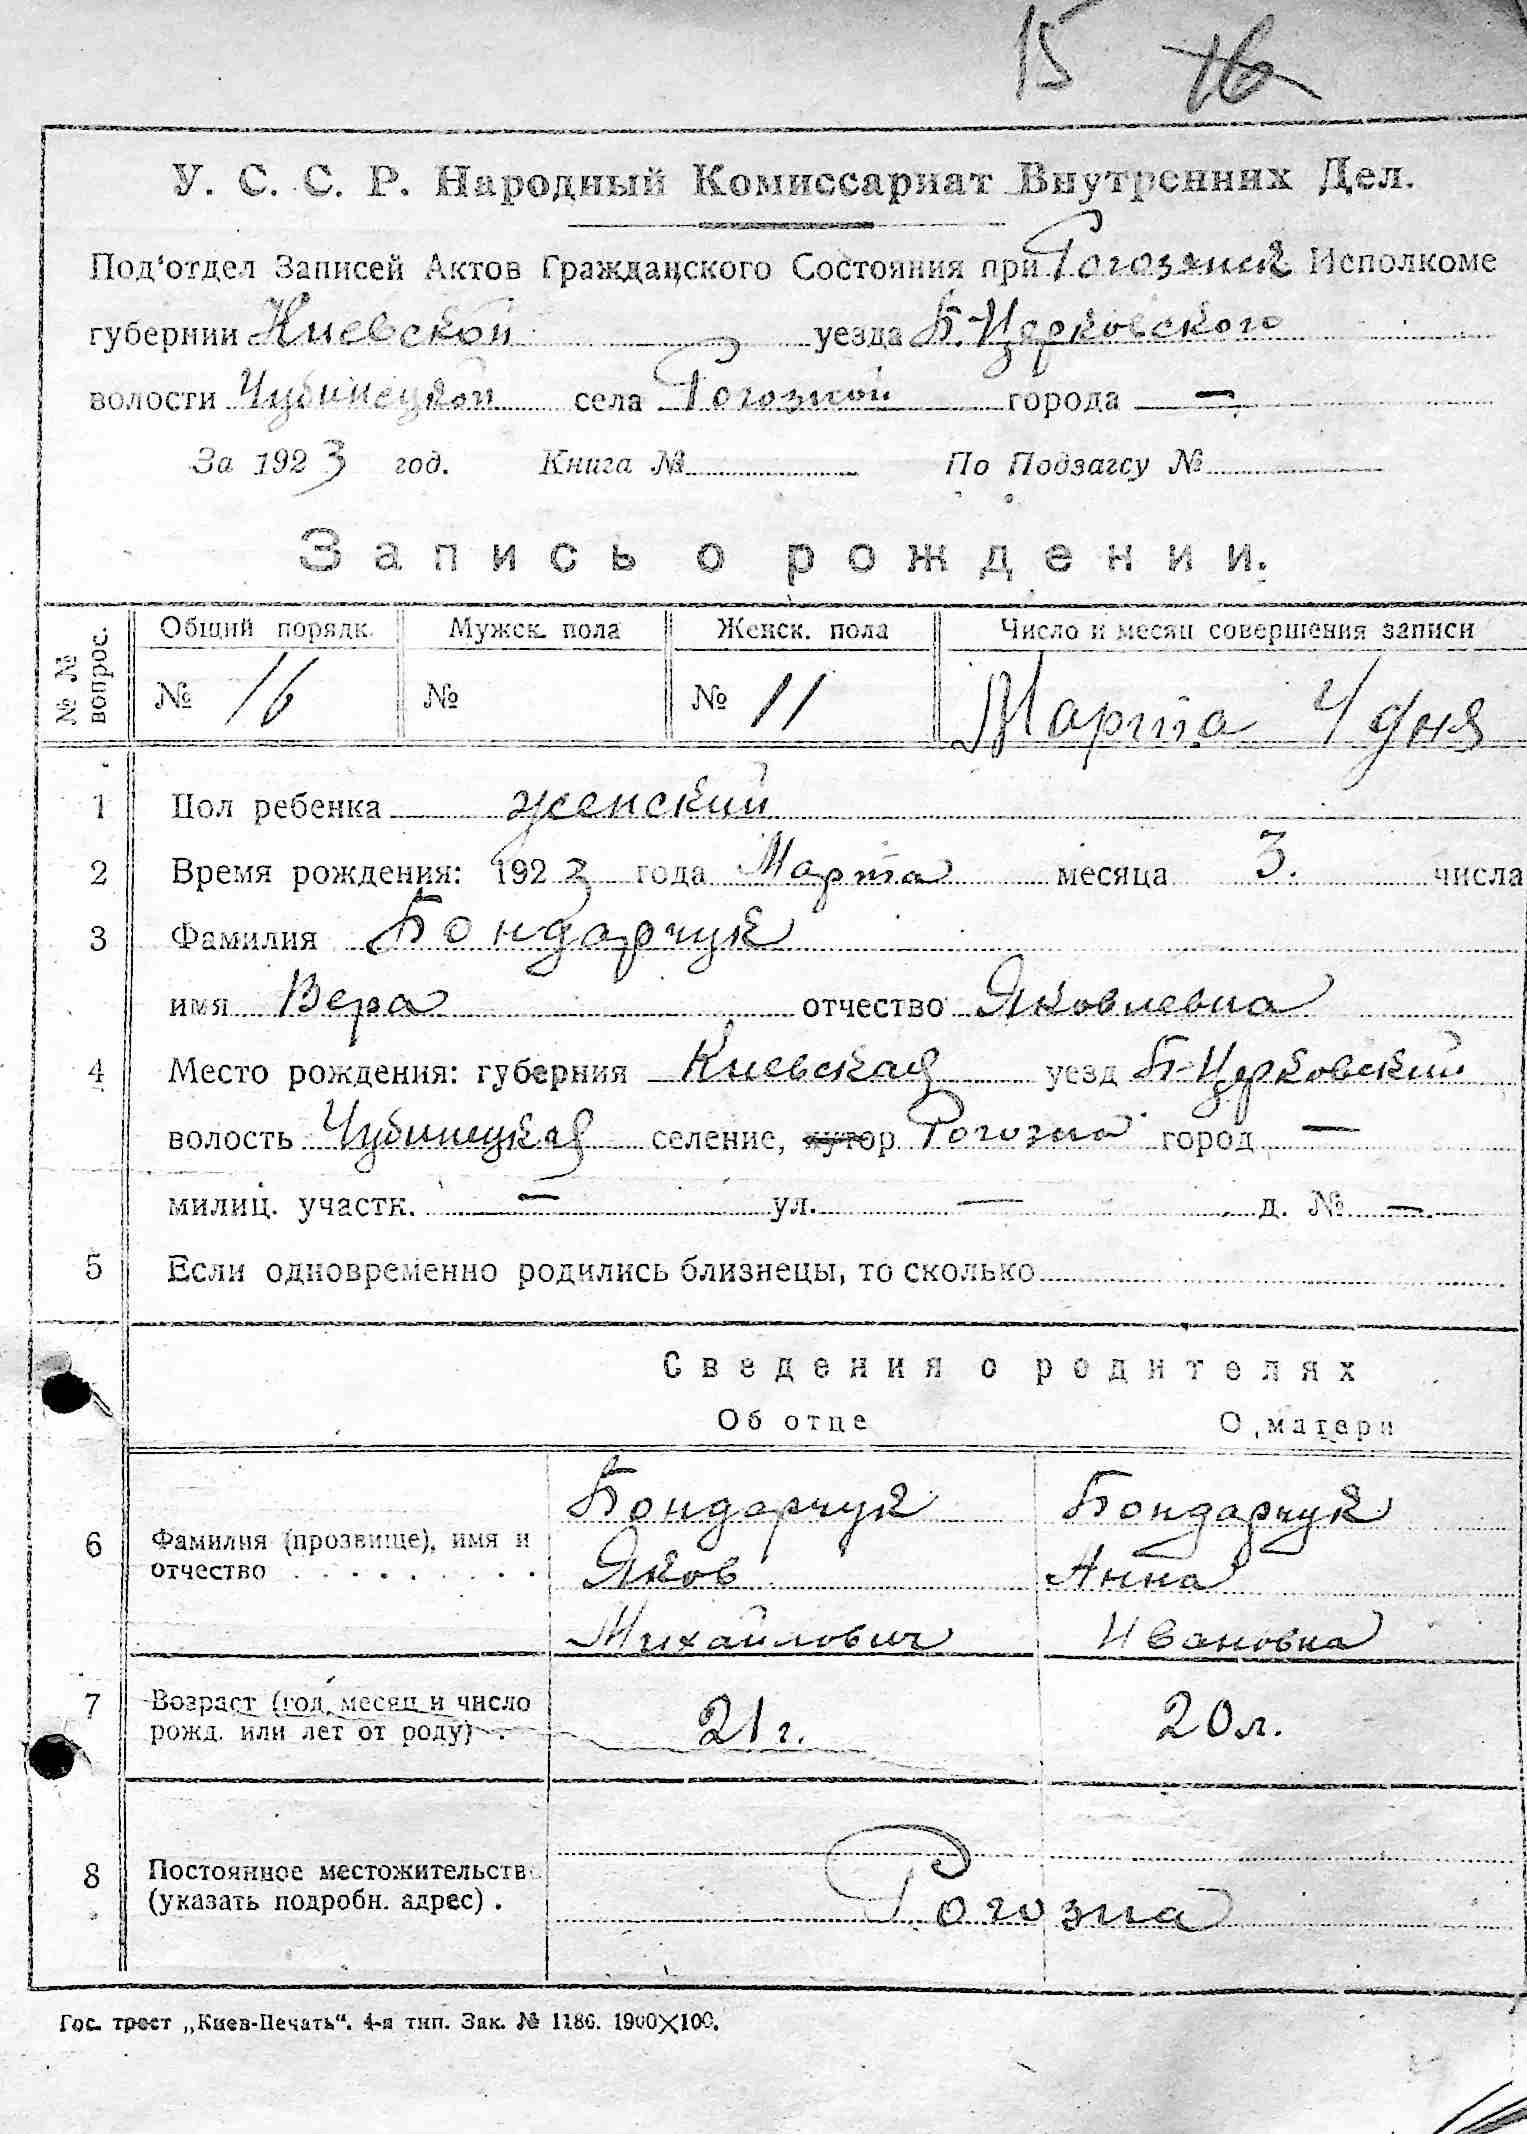 15 16
У. С. С. Р. Народный Комиссариат Внутренних Дел.
Под'отдел Записей Актов Гражданского Состояния при Рогозянск Исполкоме
губернии Киевской уезда Б.-Церковского
волости Чубинецкой села Рогозной города —
За 1923 год. Книга № По Подзагсу №
Запись о рождении.
№ № вопрос. Общий порядк. Мужск. пола Женск. пола Число и месяц совершения записи
№ 16 № № 11 Марта 4 дня
1 Пол ребенка женский
2 Время рождения: 1923 года Марта месяца 3. числа
3 Фамилия Бондарчук
имя Вера отчество Яковлевна
4 Место рождения: губерния Киевская уезд Б-Церковский
волость Чубинецкая селение, хутор Рогозна город —
милиц. участк. — ул. — д. № —
5 Если одновременно родились близнецы, то сколько
Сведения о родителях
Об отце О матери
Бондарчук Бондарчук
6 Фамилия (прозвище), имя и
отчество Яков Анна
Михайлович Ивановна
7 Возраст (год, месяц и число
рожд. или лет от роду) 21 г. 20 л.
8 Постоянное местожительство
(указать подробн. адрес) . Рогозна
Гос. трест „Киев-Печать“. 4-я тип. Зак. № 1186. 1900×100.